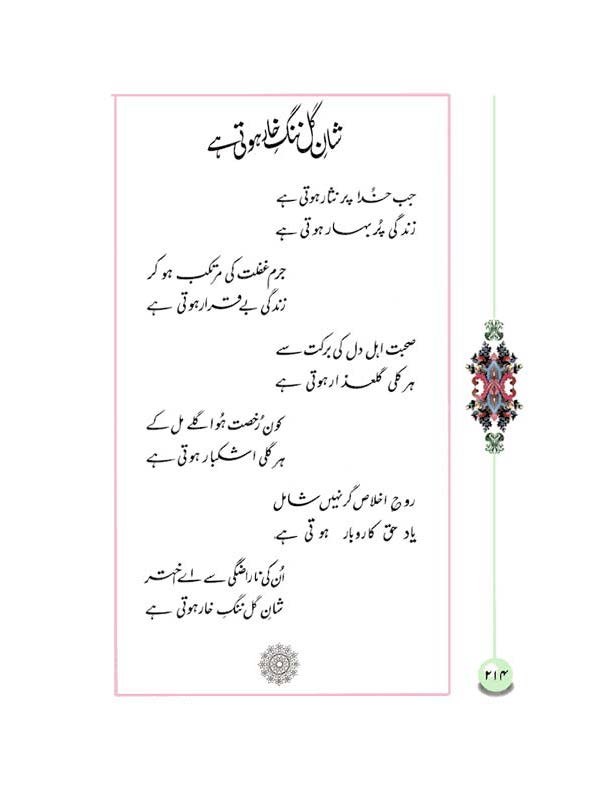 شانِ گل ننگِ خار ہوتی ہے
جب خُدا پر نثار ہوتی ہے
زندگی پُر بہار ہوتی ہے
جرم غفلت کی مرتکب ہو کر
زندگی بے قرار ہوتی ہے
صحبت اہل دل کی برکت سے
ہر کلی گلعذار ہوتی ہے
کون رُخصت ہُوا گلے مل کے
ہر گلی اشکبار ہوتی ہے
روحِ اخلاص گر نہیں شامل
یاد حق کاروبار ہوتی ہے
اُن کی ناراضگی سے اے اختر
شانِ گل ننگِ خار ہوتی ہے
۲۱۴